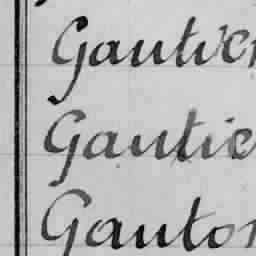 Gautver
Gautie
Gautor